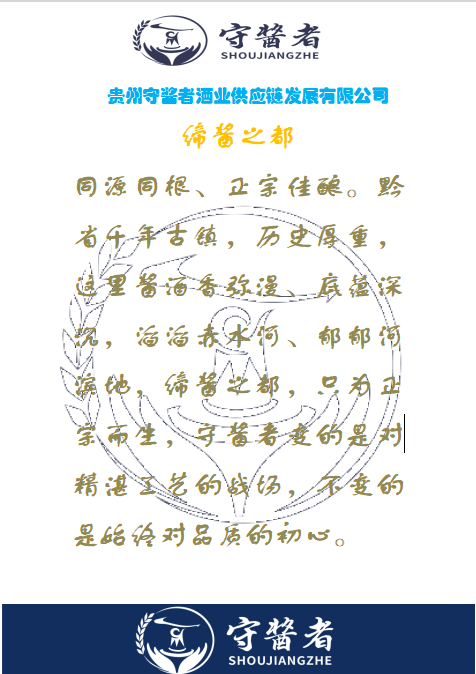 守酱者
SHOUJIANGZHE
贵州守酱者酒业供应链发展有限公司
缔酱之都
同源同根、正宗佳酿。黔
省千年古镇，历史厚重，
这里酱酒香弥漫、底蕴深
沉，滔滔赤水河、郁郁河
滨地，缔酱之都，只为正
宗而生，守酱者变的是对
精湛工艺的战场，不变的
是始终对品质的初心。
守酱者
SHOUJIANGZHE